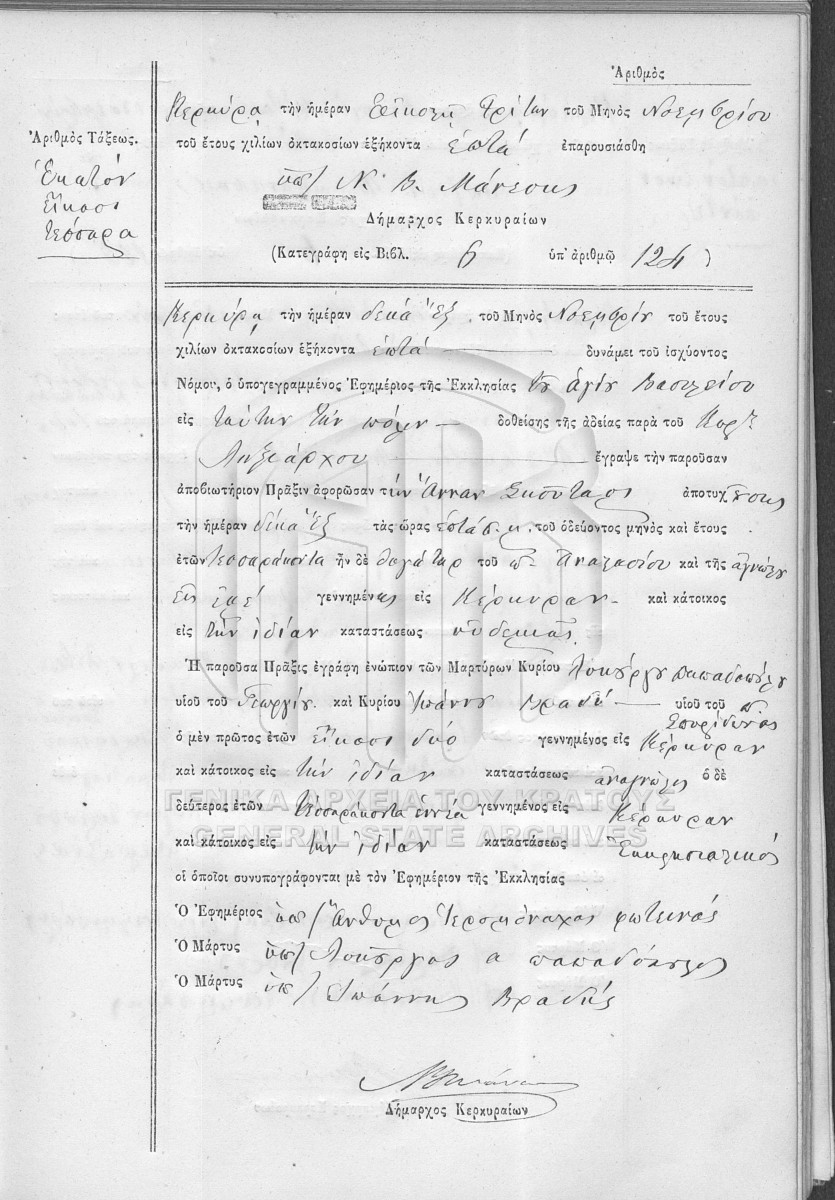 Ἀριθμὸς
Κερκύρᾳ τὴν ἡμέραν Εἰκοστῇ Τρίτην τοῦ Μηνὸς Νοεμβρίου
Ἀριθμὸς Τάξεως.
τοῦ ἔτους χιλίων ὀκτακοσίων ἑξήκοντα ἑπτά ἐπαρουσιάσθη
Ἑκατὸν
Εἴκοσι
τέσσαρα
ὑπ/ Ν. Β. Μάνεσης
Δήμαρχος Κερκυραίων
(Κατεγράφη εἰς Βιβλ. 6 ὑπ' ἀριθμῷ 124)
Κερκύρᾳ τὴν ἡμέραν δεκά ἕξ τοῦ Μηνὸς Νοεμβρίου τοῦ ἔτους
χιλίων ὀκτακοσίων ἑξήκοντα ἑπτά δυνάμει τοῦ ἰσχύοντος
Νόμου, ὁ ὑπογεγραμμένος Ἐφημέριος τῆς Ἐκκλησίας τοῦ ἁγίου Βασιλείου
εἰς ταύτην τὴν πόλιν δοθείσης τῆς ἀδείας παρὰ τοῦ
Ληξιάρχου ἔγραψε τὴν παροῦσαν
ἀποβιωτήριον Πρᾶξιν ἀφορῶσαν τὴν Ἄνναν ἀποτυχ
τὴν ἡμέραν δέκα ἕξ τὰς ὥρας ἑπτά τοῦ ὁδεύοντος μηνὸς καὶ ἔτους
ἐτῶν τεσσαράκοντα ἦν δὲ θυγάτηρ τοῦ Ἀναστασίου καὶ τῆς
γεννημένης εἰς Κέρκυραν καὶ κάτοικος
εἰς τὴν ἰδίαν καταστάσεως οὐδεμιᾶς
Ἡ παροῦσα Πρᾶξις ἐγράφη ἐνώπιον τῶν Μαρτύρων Κυρίου Λυκούργου Παπαδοπούλου
υἱοῦ τοῦ Γεωργίου καὶ Κυρίου Ἰωάννου Βραδῆ υἱοῦ τοῦ Σπυρίδωνος
ὁ μὲν πρῶτος ἐτῶν εἴκοσι δύο γεννημένος εἰς Κέρκυραν
καὶ κάτοικος εἰς τὴν ἰδίαν καταστάσεως ἀναγνώστης ὁ δὲ
ΓΕΝΙΚΑ ΑΡΧΕΙΑ ΤΟΥ ΚΡΑΤΟΥΣ
δεύτερος ἐτῶν τεσσαράκοντα ἐννέα γεννημένος εἰς Κέρκυραν
GENERAL STATE ARCHIVES
καὶ κάτοικος εἰς τὴν ἰδίαν καταστάσεως Ἐκκλησιαστικός
οἱ ὁποῖοι συνυπογράφονται μὲ τὸν Ἐφημέριον τῆς Ἐκκλησίας
Ὁ Ἐφημέριος ὑπ/ Ἄνθιμος Ἱερομόναχος Φωτεινός
Ὁ Μάρτυς ὑπ/ Λυκοῦργος Παπαδόπουλος
Ὁ Μάρτυς ὑπ/ Ἰωάννης Βραδῆς
Δήμαρχος Κερκυραίων